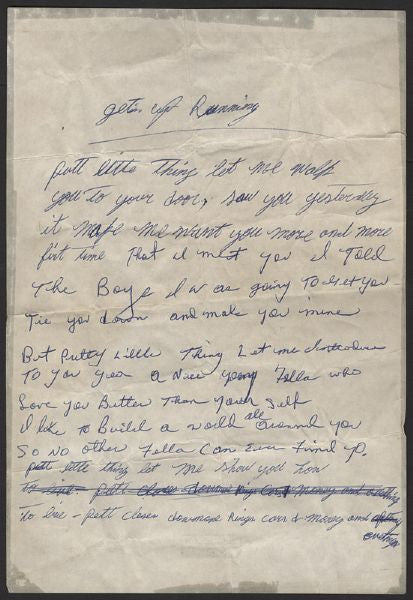 getin up Running
pett little thing let me walk
you to your door, saw you yesterday
it make me want you more and more
firt time That I meet you I Told
The Boys I was going To Get you
Tie you down and make you mine
But Pretty Little Thing Let me introduce
To you your a Nice young Fella who
Love you Butter Than your self
I like To Build a World all Around you
So No other Fella Can Ever Find yo.
pett little thing let me show you how
to live - pett closes diamons Rings cars & Money and
to live - pett closes diamons rings cars & money and